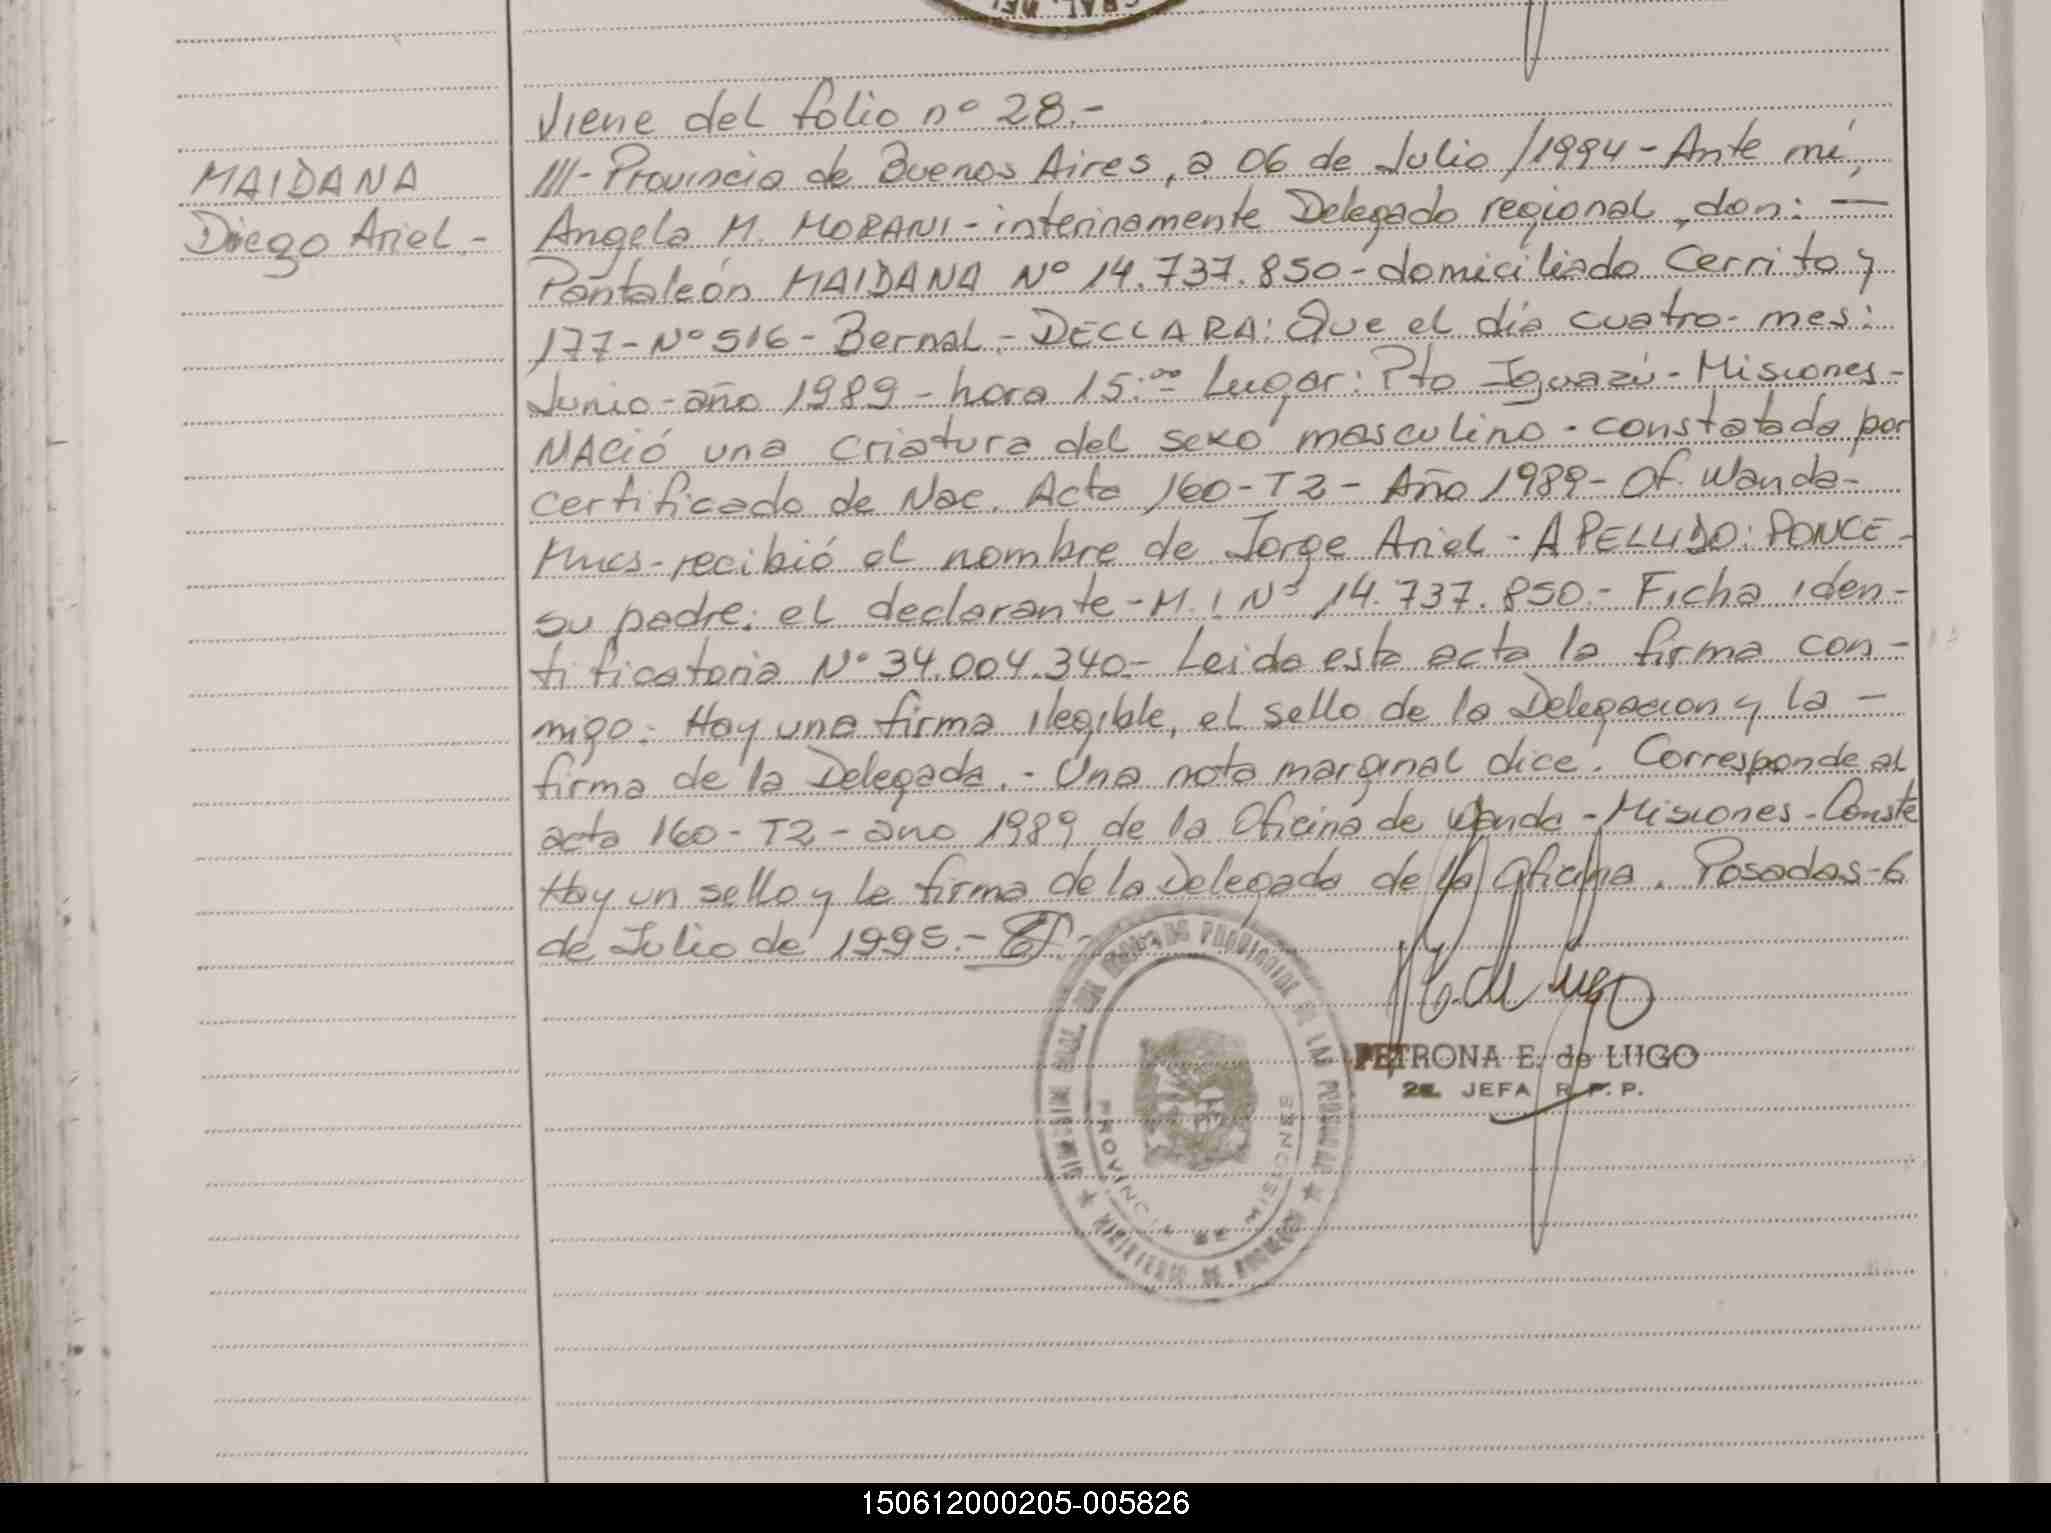 Viene del folio nº 28.-
MAIDANA
Diego Ariel -
III- Provincia de Buenos Aires, a 06 de Julio /1994 - Ante mí,
Angela M. MORANI - interinamente Delegado regional, don: —
Pantaleón MAIDANA Nº 14.737.850 - domiciliado Cerrito y
177 - Nº 516 - Bernal - DECLARA: Que el día cuatro - mes:
Junio - año 1989 - hora 15:00 Lugar: Pto Iguazú - Misiones -
NACió una criatura del sexo masculino - constatada por
certificado de Nac. Acta 160 - T2 - Año 1989 - Of. Wanda -
Mnes - recibió el nombre de Jorge Ariel - APELLIDO: PONCE -
su padre: el declarante - M.I Nº 14.737.850.- Ficha iden-
tificatoria Nº 34.004.340.- Leida esta acta la firma con-
migo: Hay una firma ilegible, el sello de la Delegacion y la —
firma de la Delegada. - Una nota marginal dice: Corresponde al
acta 160 - T2 - ano 1989 de la Oficina de Wanda - Misiones - Conste
Hay un sello y la firma de la Delegada de la Oficina. Posadas - 6
de Julio de 1995.-
PROVINCIA DE MISIONES
MINISTERIO DE GOBIERNO
PETRONA E. de LUGO
2a. JEFA R.P.P.
150612000205-005826